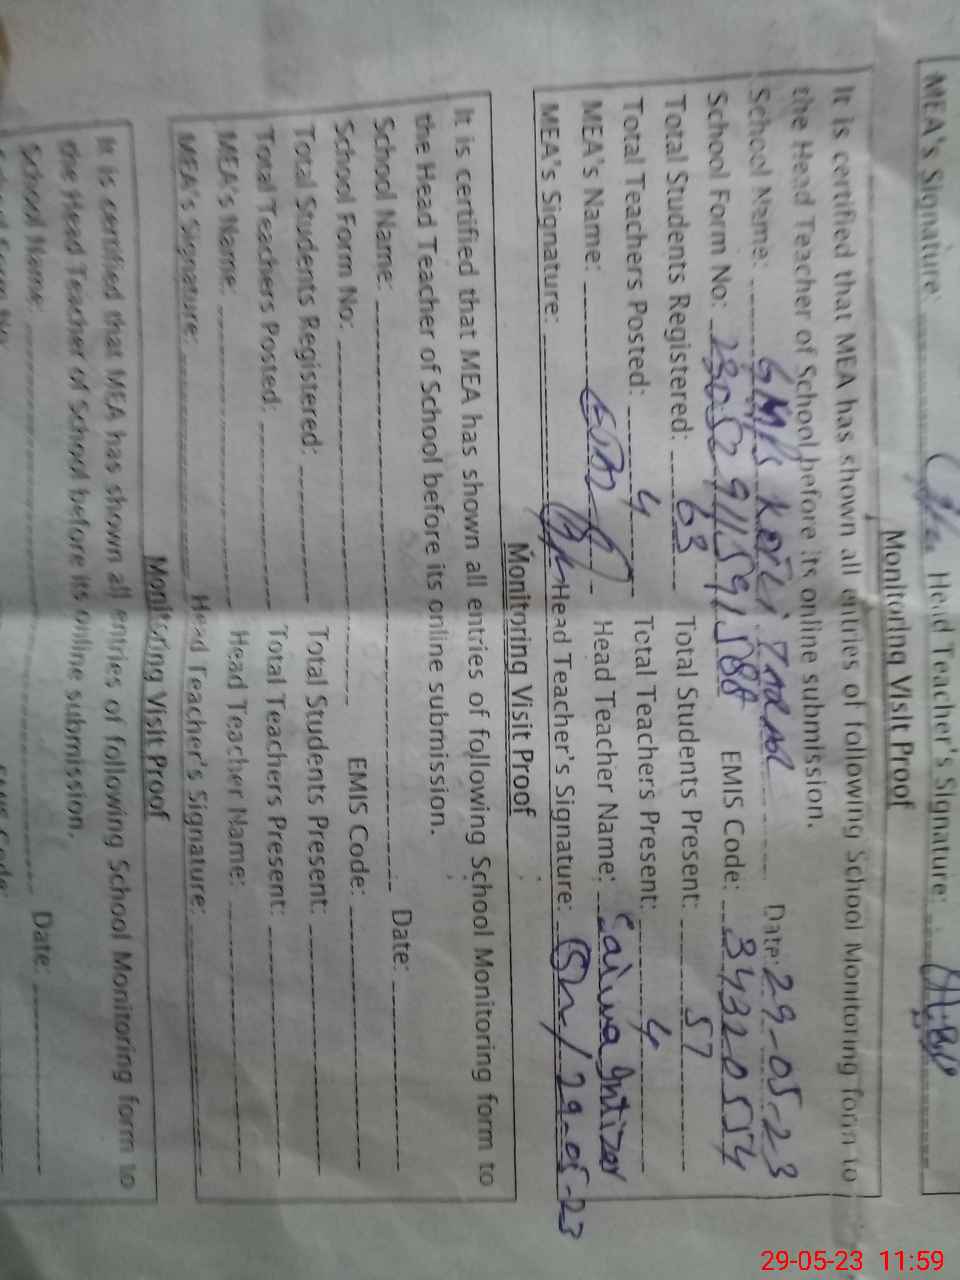 MEA's Signature: Head Teacher's Signature:
Monitoring Visit Proof
It is certified that MEA has shown all entries of following School Monitoring form to
the Head Teacher of School before its online submission.
School Name: GMPS Date: 29-05-23
School Form No: EMIS Code: 34320554
Total Students Registered: 63 Total Students Present: 57
Total Teachers Posted: 4 Total Teachers Present: 4
MEA's Name: Head Teacher Name: Saima Intizar
MEA's Signature: Head Teacher's Signature: 29-05-23
Monitoring Visit Proof
It is certified that MEA has shown all entries of following School Monitoring form to
the Head Teacher of School before its online submission.
School Name: Date:
School Form No: EMIS Code:
Total Students Registered: Total Students Present:
Total Teachers Posted: Total Teachers Present:
MEA's Name: Head Teacher Name:
MEA's Signature: Head Teacher's Signature:
Monitoring Visit Proof
It is certified that MEA has shown all entries of following School Monitoring form to
the Head Teacher of School before its online submission.
School Name: Date:
29-05-23 11:59